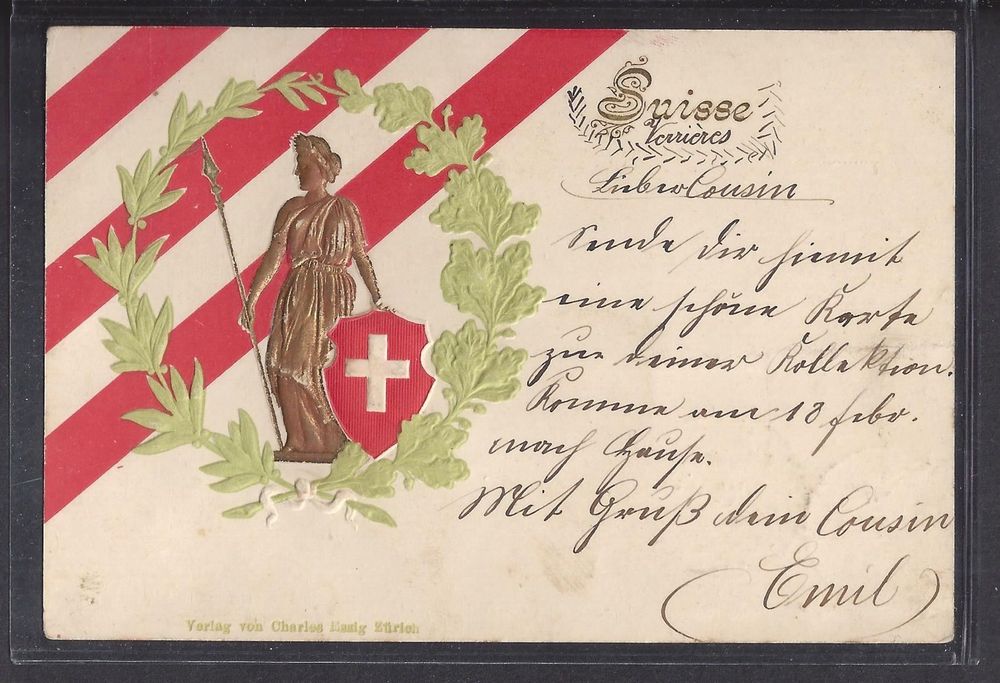 Suisse
Verrières
Lieber Cousin
Sende dir hiemit
eine schöne Karte
zur deiner Kollektion.
Komme am 18 febr.
nach Hause.
Mit Gruß dein Cousin
Emil
Verlag von Charles Essig Zürich